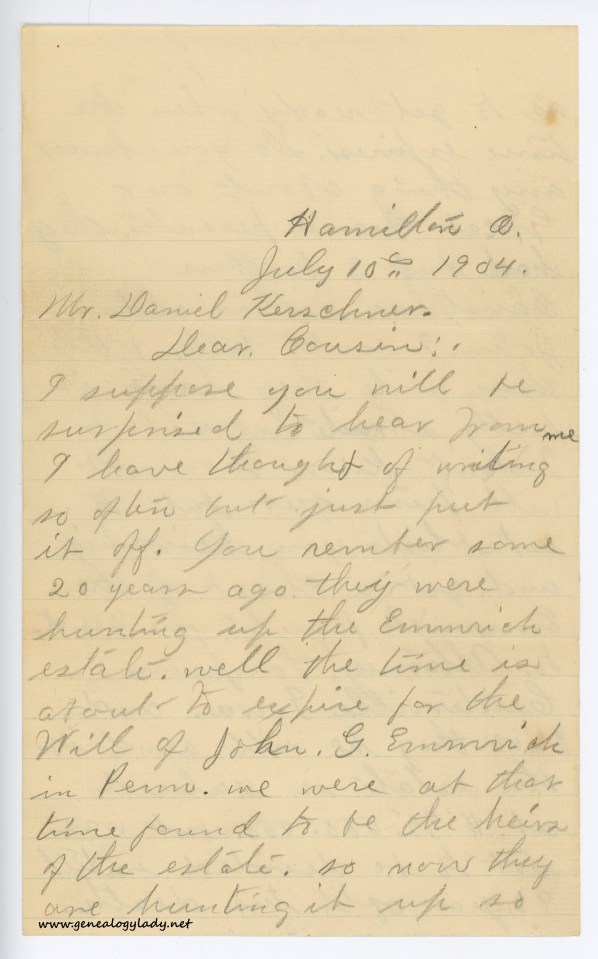 Hamilton O.
July 10th 1904.
Mr. Daniel Kerschner.
Dear. Cousin:.
I suppose you will be
surprised to hear from me
I have thought of writing
so often but just put
it off. You rember some
20 years ago they were
hunting up the Emmrich
estate. well the time is
about to expire for the
Will of John. G. Emmrich
in Penn. we were at that
time found to be the heirs
of the estate. so now they
are hunting it up so
www.genealogylady.net